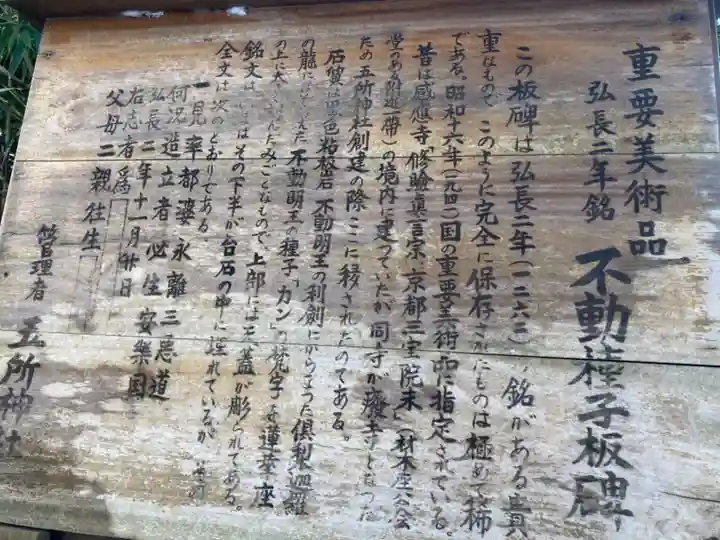 重要美術品
弘長二年銘 不動種子板碑
この板碑は弘長二年(一二六二)、銘がある貴
重なもので このように完全に保存されたものは極めて稀
である。昭和十六年(一九四一)国の重要美術品に指定されている。
昔は感應寺(修驗眞言宗、京都三宝院末)(材木座公会
堂のある附近一帯)の境内に建っていたが同寺が廢寺となった
ため五所神社創建の際ここに移されたのである。
石質は黒色粘板石 不動明王の利劍にからまった俱利迦羅
の龍に 不動明王の種子「カン」の梵字を蓮華座
の上に大 みごとなもので、上部には天蓋が彫られてある。
銘文は、 その下半が台石の中に埋れているが その
全文は次のとおりである。
一見率都婆永離三悪道
何況造立者必生安樂国
弘長二年十一月廿日
右志者爲
父母二親往生
管理者 五所神社